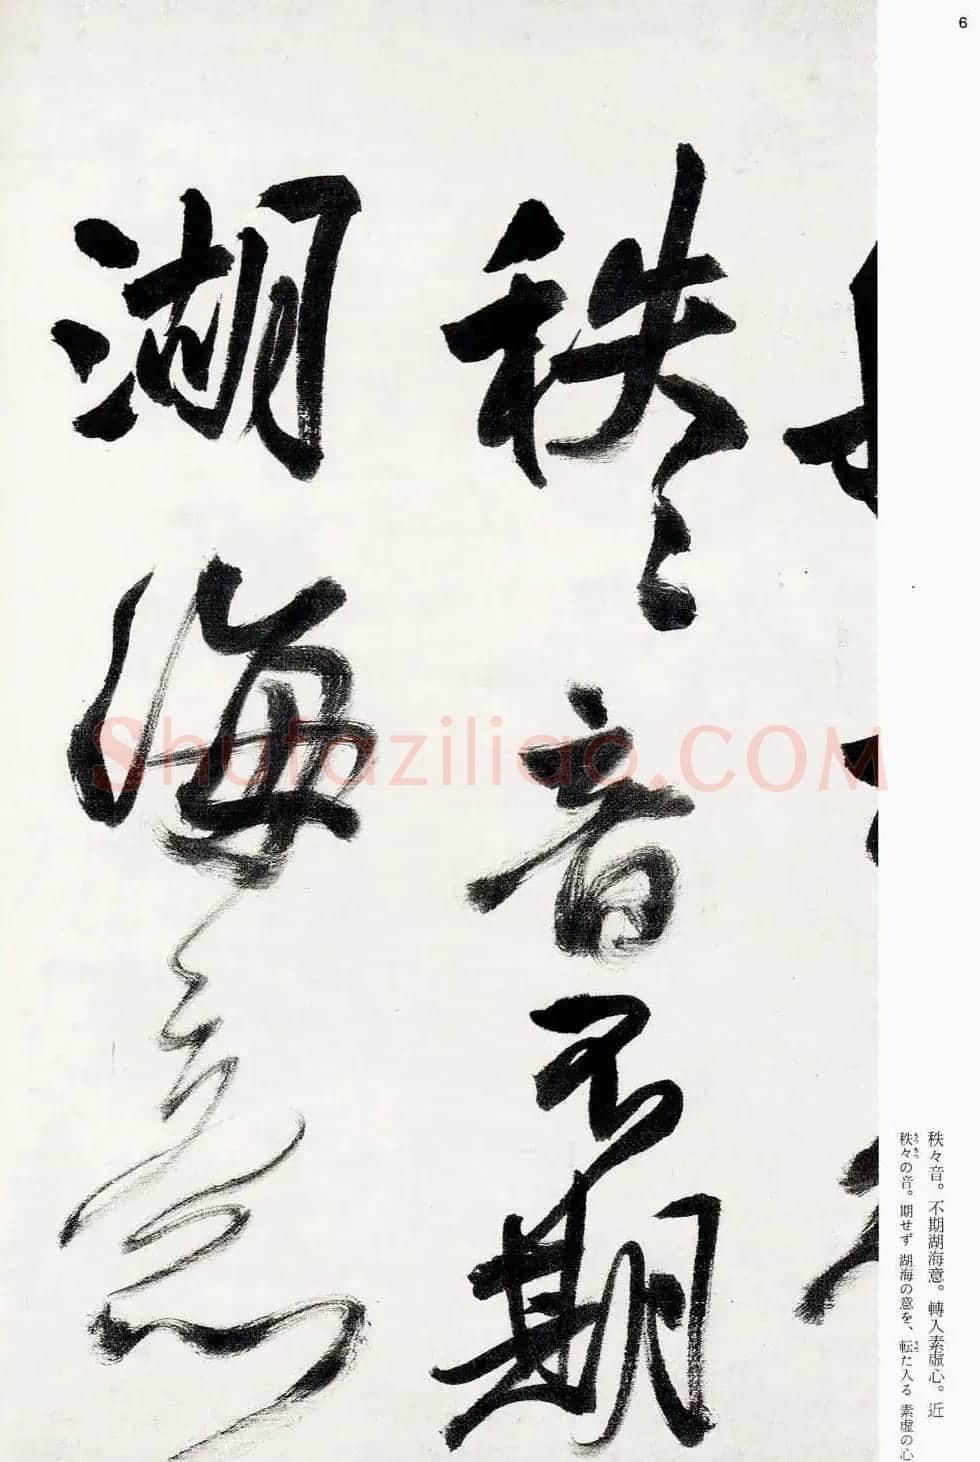 6
秩〻音不期
湖海意
秩々音。不期湖海意。轉入素虛心。近
秩々の音。期せず 湖海の意を、転た入る 素虚の心
Shufaziliao.COM